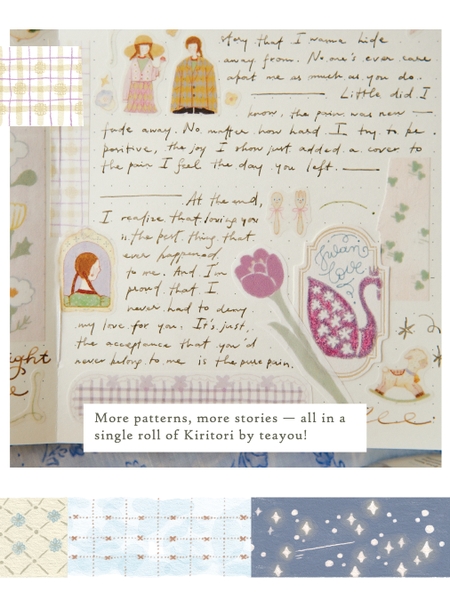 story that I wanna hide
away from. No one's ever care
about me as much as you do.
Little did I
know, the pain was never
fade away. No matter how hard I try to be
positive, the joy I show just added a cover to
the pain I feel the day you left.
At the end,
I realize that loving you
is the best thing that
ever happened
to me. And I'm
proud that I
never had to deny
my love for you. It's just,
the acceptance that you'd
never belong to me is the pure pain.
Swan
Love
More patterns, more stories — all in a
single roll of Kiritori by teayou!